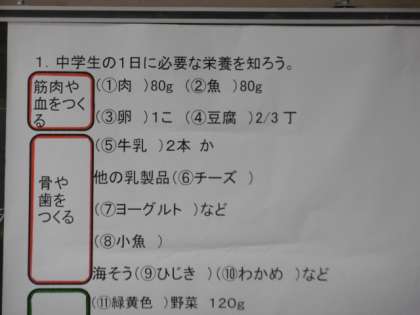 1. 中学生の1日に必要な栄養を知ろう。
筋肉や
血をつく
る
(①肉 )80g (②魚 )80g
(③卵 )1こ (④豆腐 )2/3丁
骨や
歯を
つくる
(⑤牛乳 )2本 か
他の乳製品(⑥チーズ )
(⑦ヨーグルト )など
(⑧小魚 )
海そう(⑨ひじき )(⑩わかめ )など
(⑪緑黄色 )野菜 120g